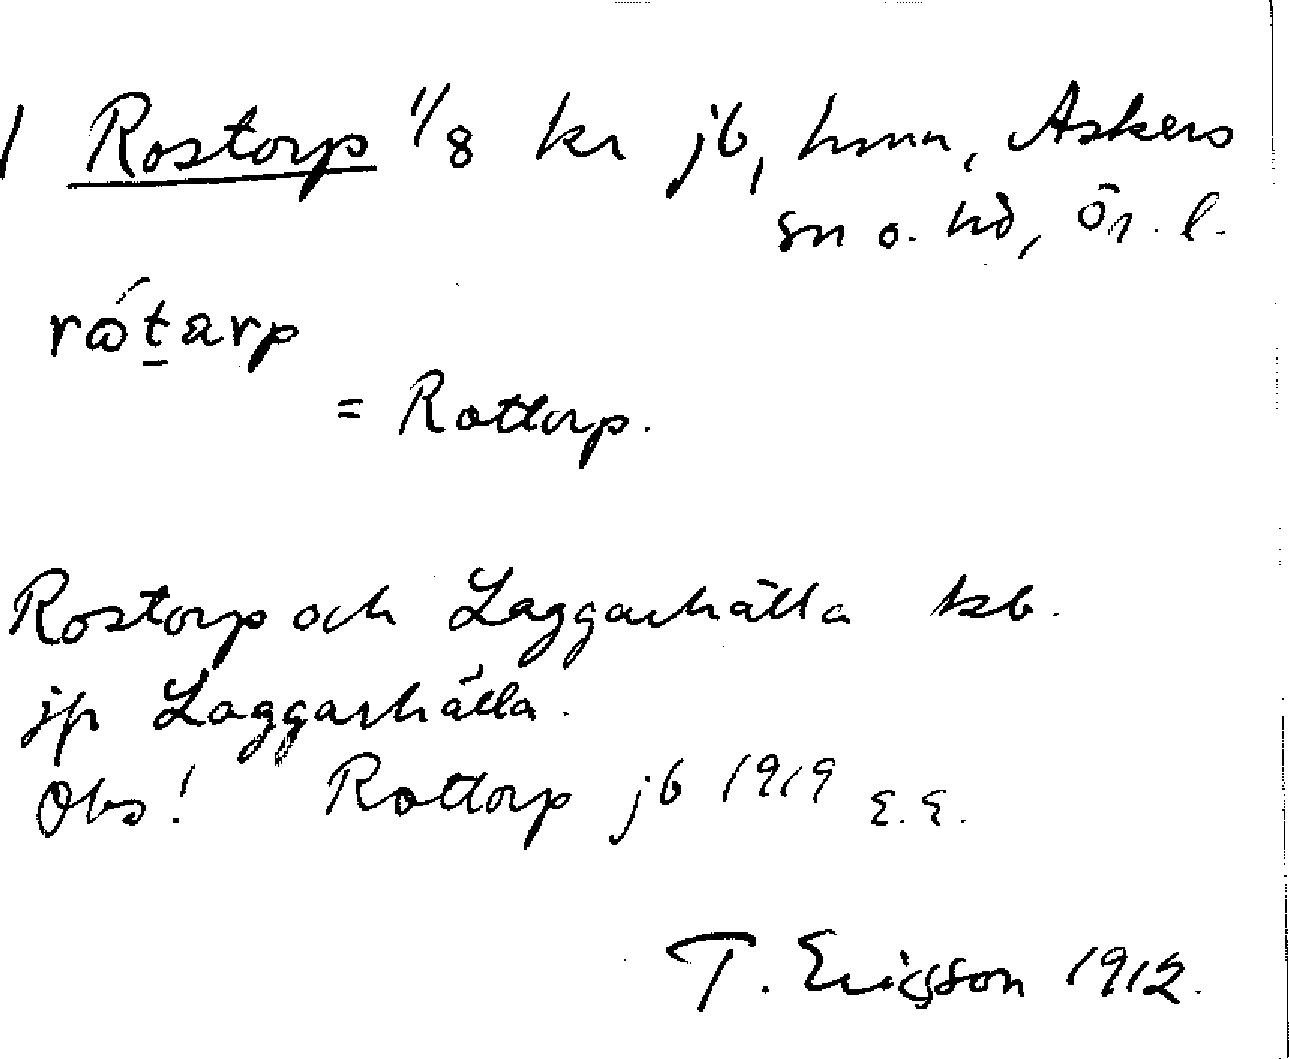 1 Rostorp 1/8 kr jb, hmn, Askers
sn o. hd, Ör. l.
rót̲arp
= Rottorp.
Rostorp och Laggarhälla kb.
jfr Laggarhälla.
Obs! Rottorp jb 1919 E.E.
T. Ericsson 1912.